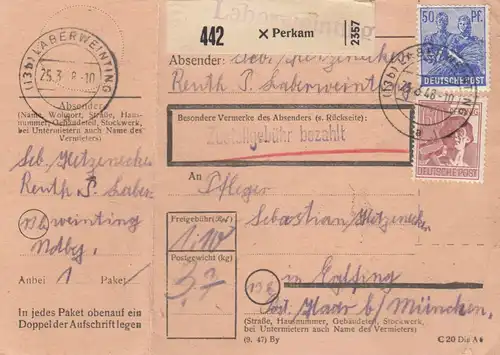 Laberweinting
442 × Perkam 2357
50 PF.
DEUTSCHE POST
(13b) LABERWEINTING
25.3. 8-10
(13b) LABERWEINTING
25.3.48-10
a
DEUTSCHE POST
Absender: Seb. Hetzenecker
Reuth P. Laberweinting
Absender
(Name, Wohnort, Straße, Haus-
nummer, Gebäudeteil, Stockwerk,
bei Untermietern auch Name des
Vermieters)
Seb. Hetzenecker
Reuth P. Laber-
13b weinting
Ndby.
Anbei 1 Paket
In jedes Paket obenauf ein
Doppel der Aufschrift legen
Besondere Vermerke des Absenders (s. Rückseite):
Zustellgebühr bezahlt
An Pfleger
Sebastian Hetzenecker
Freigebühr (RM)
1.10
Postgewicht (kg)
3,7
in Eglfing
13b Post Haar b/ München.
(Straße, Hausnummer, Gebäudeteil, Stockwerk,
bei Untermietern auch Name des Vermieters)
(9. 47) By
C 20 Din A 6